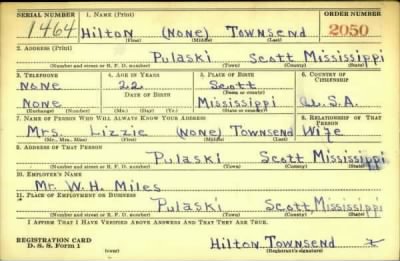 SERIAL NUMBER 1. NAME (Print) ORDER NUMBER
1464 Hilton (None) Townsend 2050
(First) (Middle) (Last)
2. ADDRESS (Print)
Pulaski Scott Mississippi
(Number and street or R. F. D. number) (Town) (County) (State)
3. TELEPHONE 4. AGE IN YEARS 5. PLACE OF BIRTH 6. COUNTRY OF CITIZENSHIP
None 22 Scott
(Town or county)
DATE OF BIRTH
None Mississippi U.S.A.
(Exchange) (Number) (Mo.) (Day) (Yr.) (State or country)
7. NAME OF PERSON WHO WILL ALWAYS KNOW YOUR ADDRESS 8. RELATIONSHIP OF THAT PERSON
Mrs. Lizzie (None) Townsend Wife
(Mr., Mrs., Miss) (First) (Middle) (Last)
9. ADDRESS OF THAT PERSON
Pulaski Scott Mississippi
(Number and street or R. F. D. number) (Town) (County) (State)
10. EMPLOYER'S NAME
Mr. W. H. Miles
11. PLACE OF EMPLOYMENT OR BUSINESS
Pulaski Scott, Mississippi
(Number and street or R. F. D. number) (Town) (County) (State)
I AFFIRM THAT I HAVE VERIFIED ABOVE ANSWERS AND THAT THEY ARE TRUE.
REGISTRATION CARD
D. S. S. Form 1 (over) Hilton Townsend
(Registrant's signature)